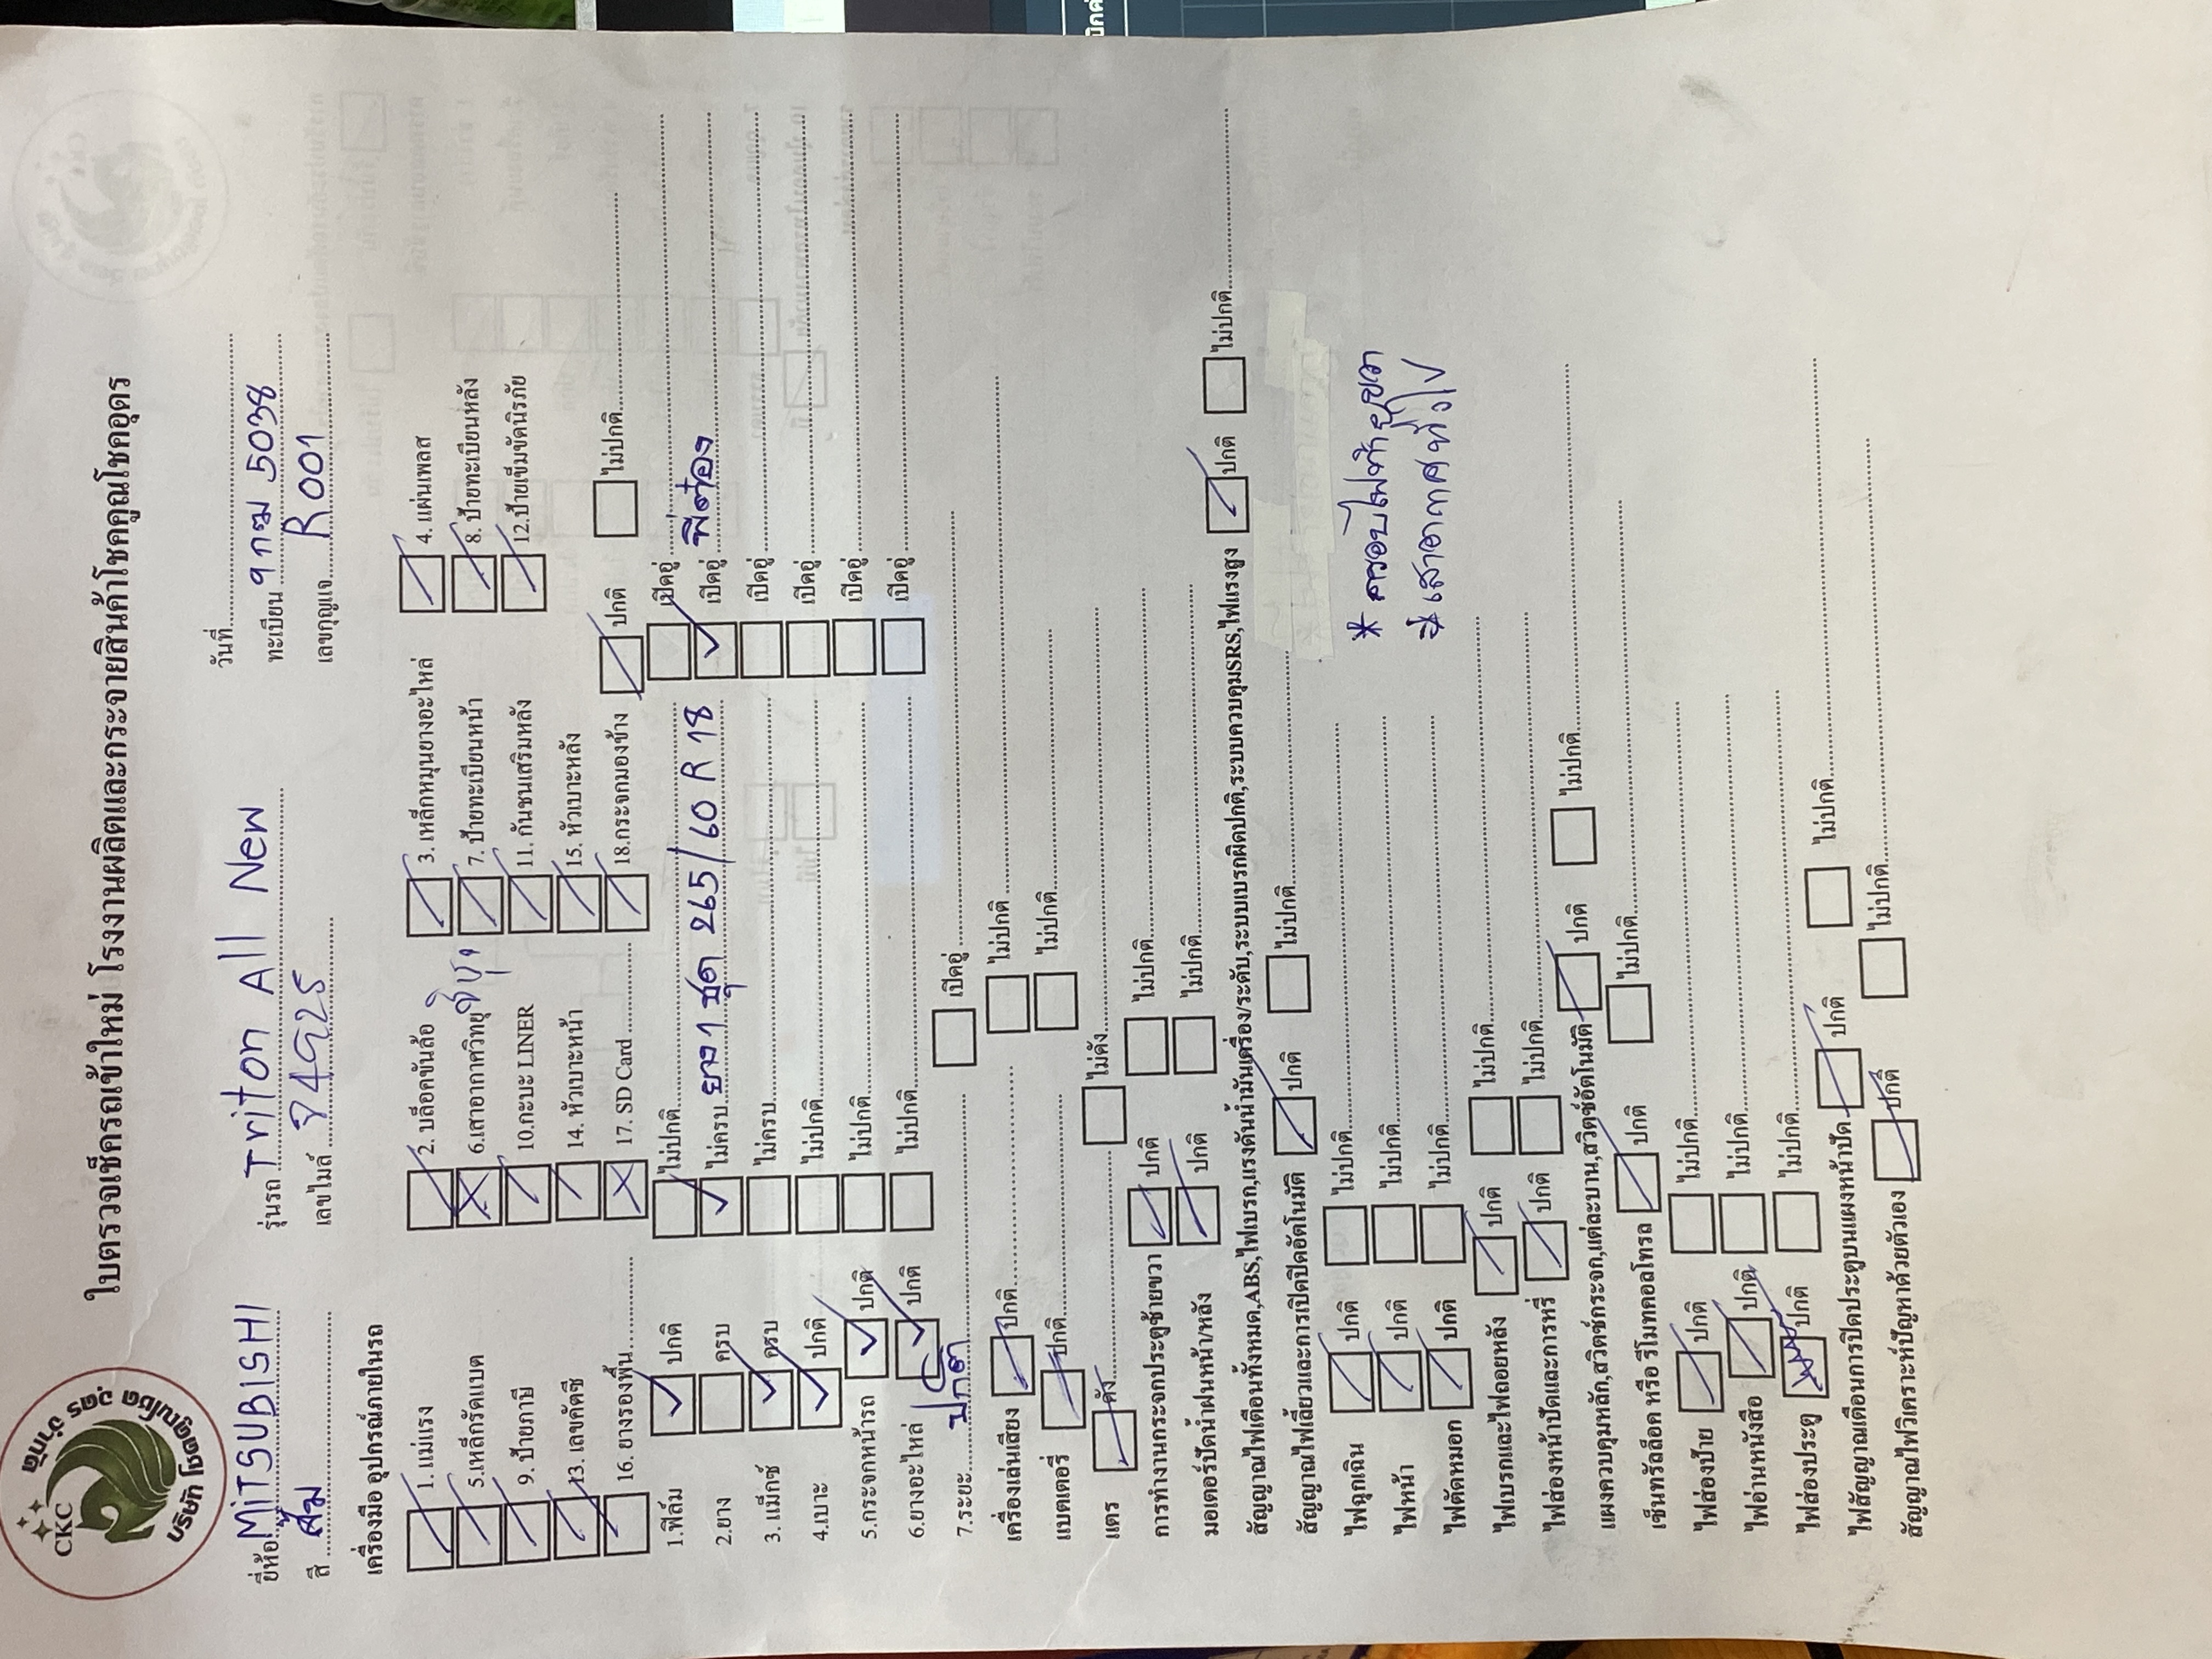 บริษัท โชคคูณโชค อุดร จำกัด
CKC
ใบตรวจเช็ครถเข้าใหม่ โรงงานผลิตและกระจายสินค้าโชคคูณโชคอุดร
ยี่ห้อ MITSUBISHI รุ่นรถ Triton All New วันที่
ทะเบียน 9กฒ 5038
สี ส้ม เลขไมล์ 84925 เลขกุญแจ R001
เครื่องมือ อุปกรณ์ภายในรถ
1. แม่แรง 2. บล็อคขันล้อ 3. เหล็กหมุนยางอะไหล่ 4. แผ่นเพลส
5.เหล็กรัดแบต 6.เสาอากาศวิทยุ 7. ป้ายทะเบียนหน้า 8. ป้ายทะเบียนหลัง
9. ป้ายภาษี 10.กะบะ LINER 11. กันชนเสริมหลัง 12.ป้ายเข็มขัดนิรภัย
13. เลขคัตซี 14. หัวเบาะหน้า 15. หัวเบาะหลัง
16. ยางรองพื้น 17. SD Card 18.กระจกมองข้าง ปกติ ไม่ปกติ
1.ฟิล์ม ปกติ ไม่ปกติ เบิคอู่
2.ยาง ครบ ไม่ครบ ยาง 1 ชุด 265/60 R 18 เบิคอู่
3. แม็กซ์ ครบ ไม่ครบ เบิคอู่
4.เบาะ ปกติ ไม่ปกติ เบิคอู่
5.กระจกหน้ารถ ปกติ ไม่ปกติ เบิคอู่
6.ยางอะไหล่ ปกติ ไม่ปกติ เบิคอู่
7.ระยะ ปกติ เบิคอู่
เครื่องเล่นเสียง ปกติ ไม่ปกติ
แบตเตอรี่ ปกติ ไม่ปกติ
แตร ดัง ไม่ดัง
การทำงานกระจกประตูซ้ายขวา ปกติ ไม่ปกติ
มอเตอร์ปัดน้ำฝนหน้า/หลัง ปกติ ไม่ปกติ
สัญญาณไฟเตือนทั้งหมด,ABS,ไฟเบรก,แรงดันน้ำมันเครื่อง/ระดับ,ระบบเบรกผิดปกติ,ระบบควบคุมSRS,ไฟแรงสูง ปกติ ไม่ปกติ
สัญญาณไฟเลี้ยวและการเปิดปิดอัตโนมัติ ปกติ ไม่ปกติ
ไฟฉุกเฉิน ปกติ ไม่ปกติ
ไฟหน้า ปกติ ไม่ปกติ
* ครอบไฟท้ายขวา
ไฟตัดหมอก ปกติ ไม่ปกติ
* เสาอากาศ
ไฟเบรกและไฟถอยหลัง ปกติ ไม่ปกติ
ไฟส่องหน้าปัดและการหรี่ ปกติ ไม่ปกติ
แผงควบคุมหลัก,สวิตซ์กระจก,แต่ละบาน,สวิตซ์อัตโนมัติ ปกติ ไม่ปกติ
เซ็นทรัลล็อค หรือ รีโมทคอลโทรล ปกติ ไม่ปกติ
ไฟส่องป้าย ปกติ ไม่ปกติ
ไฟอ่านหนังสือ ปกติ ไม่ปกติ
ไฟส่องประตู ปกติ ไม่ปกติ
ไฟสัญญาณเตือนการปิดประตูบนแผงหน้าปัด ปกติ ไม่ปกติ
สัญญาณไฟวิเคราะห์ปัญหาด้วยตัวเอง ปกติ ไม่ปกติ